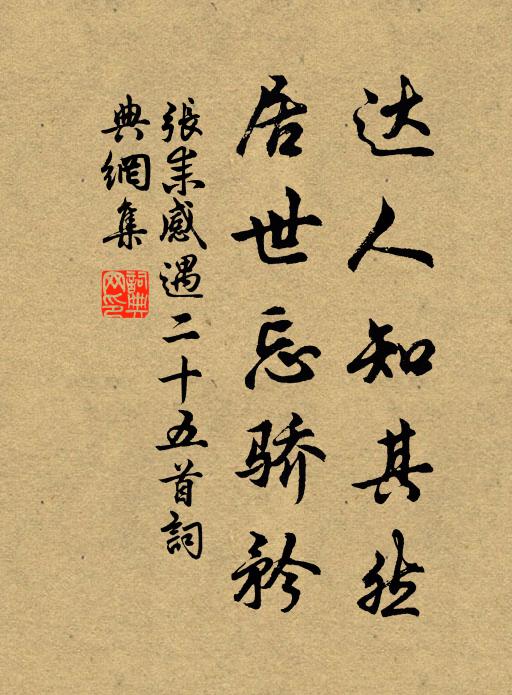 达人知其然
居世忘骄矜
張耒感遇二十五首詞
典網集
詞典网印